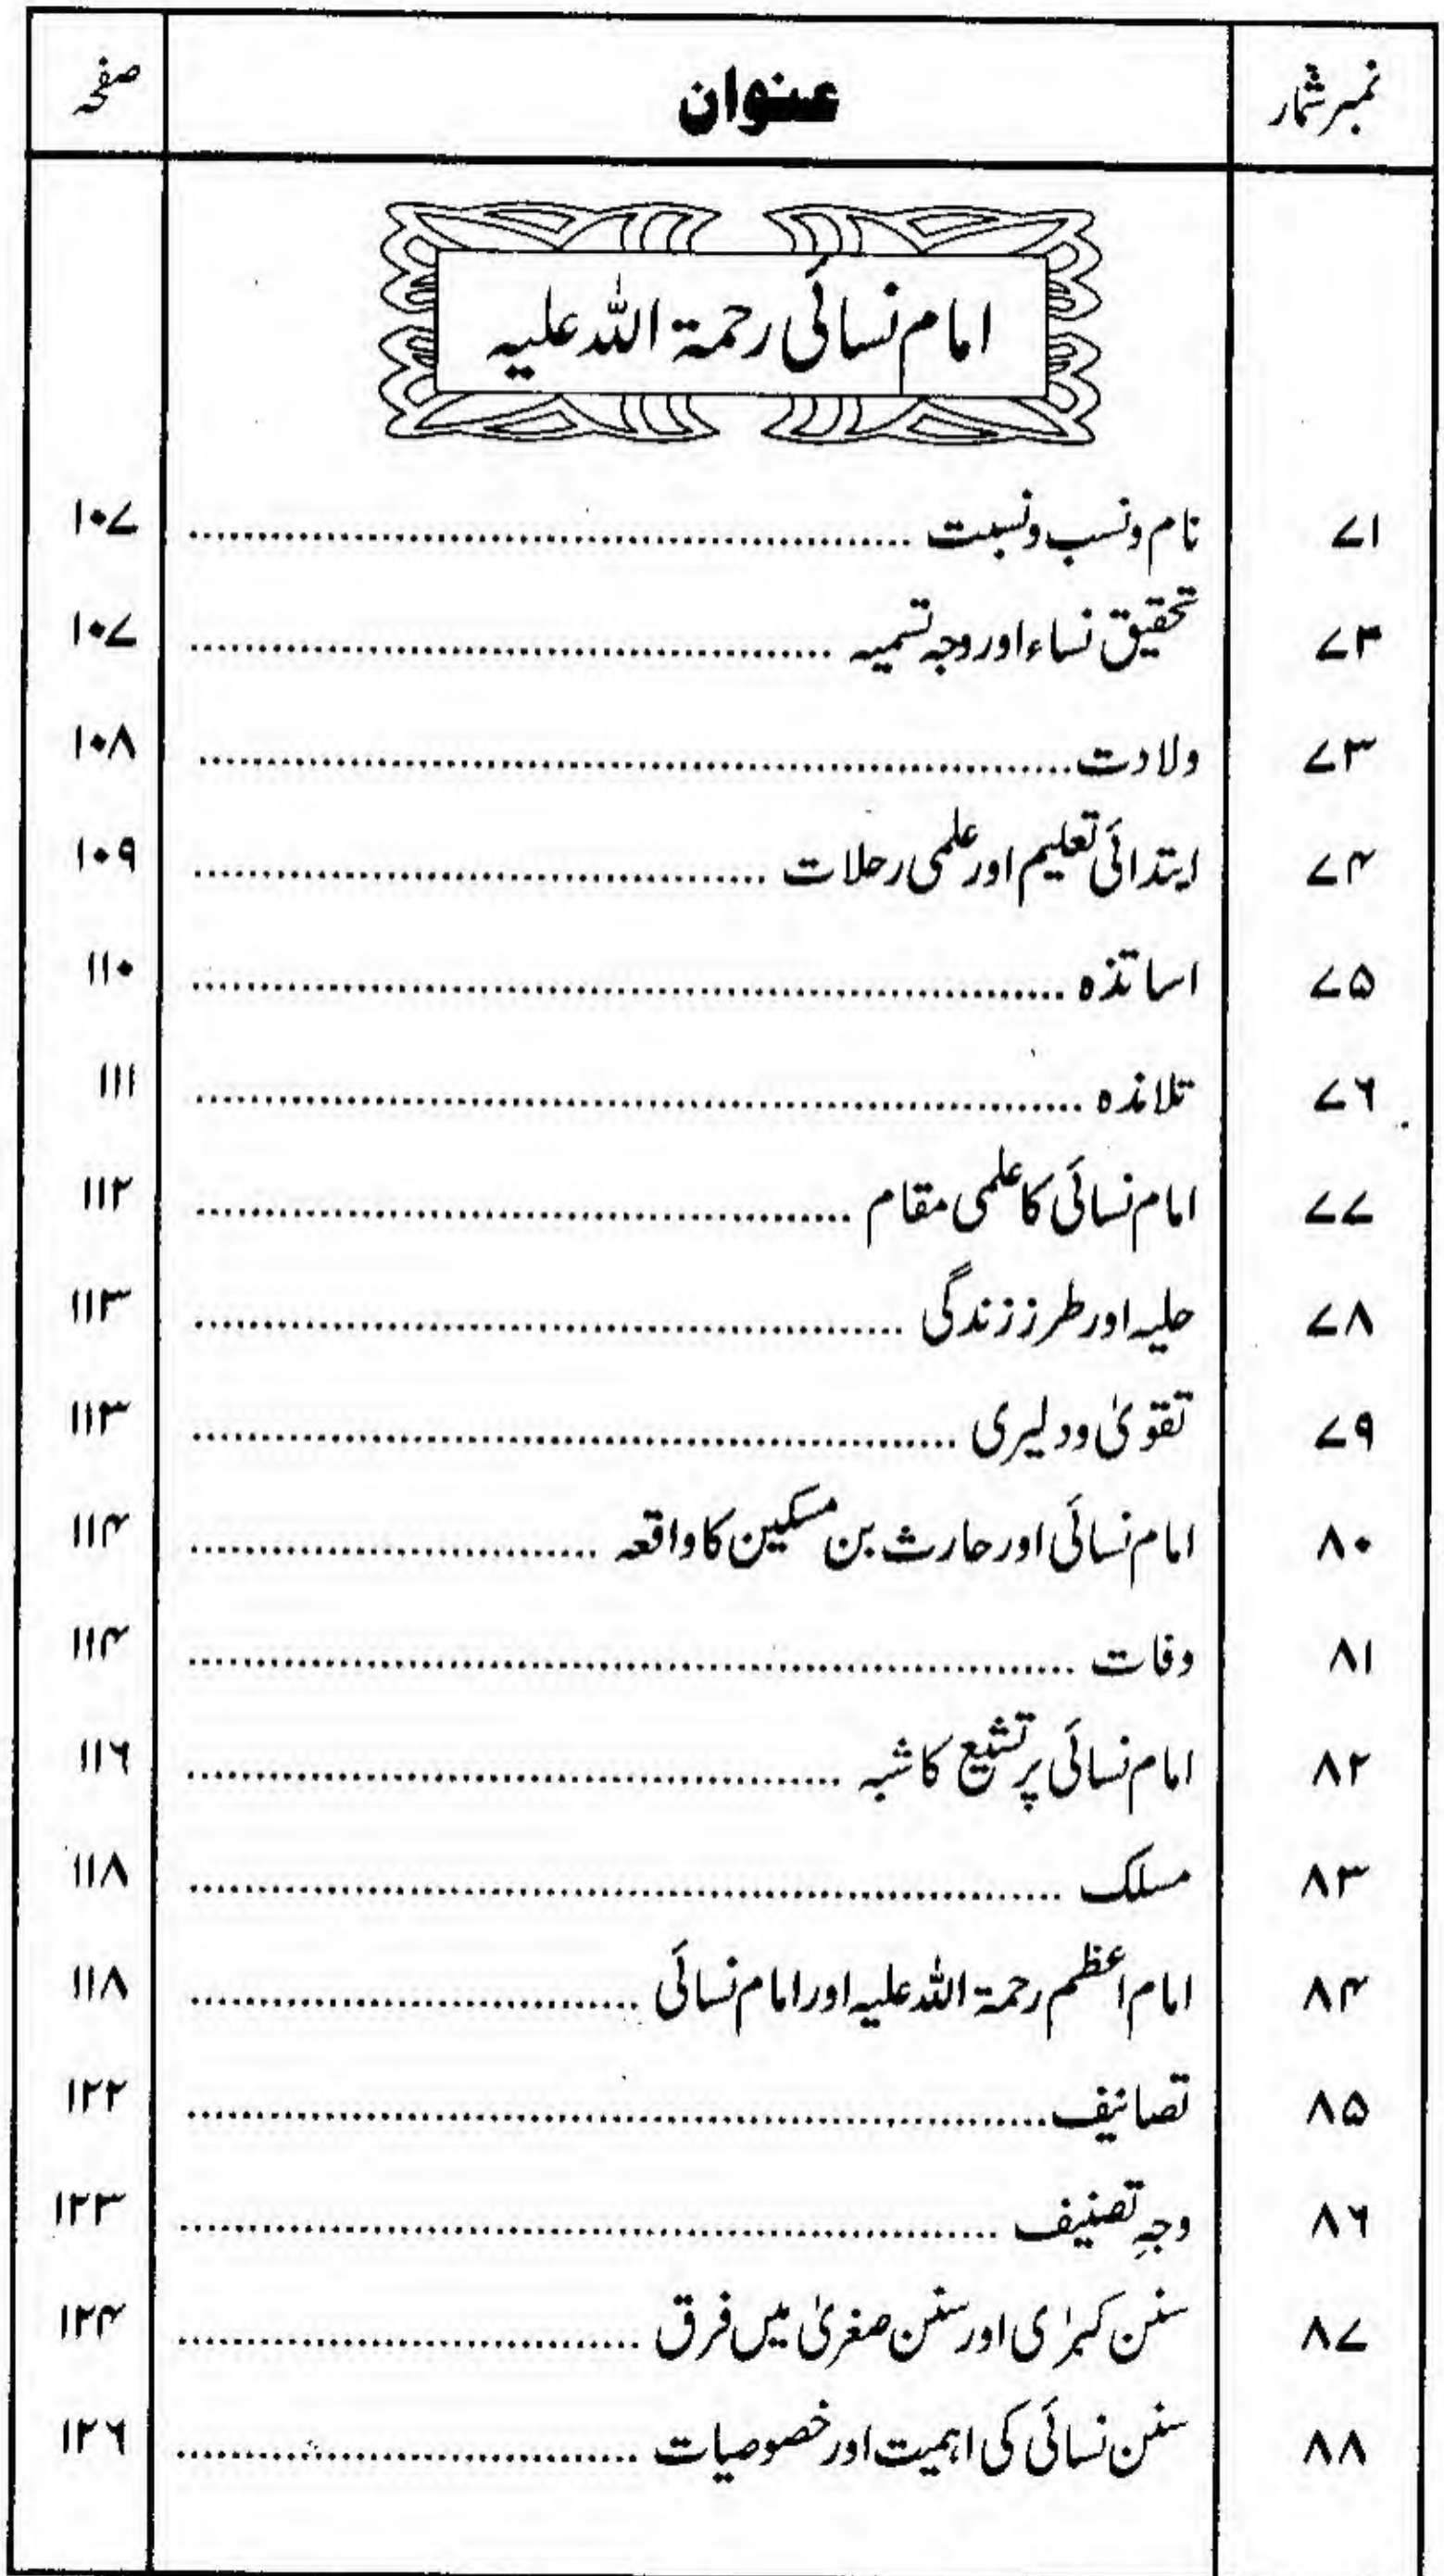 نمبر شمار عنوان صفحہ
امام نسائی رحمۃ اللہ علیہ
۷۱ نام ونسب ونسبت ........ ۱۰۷
۷۲ تحقیق نساء اور وجہ تسمیہ ........ ۱۰۷
۷۳ ولادت ........ ۱۰۸
۷۴ ابتدائی تعلیم اور علمی رحلات ........ ۱۰۹
۷۵ اساتذہ ........ ۱۱۰
۷۶ تلامذہ ........ ۱۱۱
۷۷ امام نسائی کا علمی مقام ........ ۱۱۲
۷۸ حلیہ اور طرز زندگی ........ ۱۱۳
۷۹ تقویٰ ودلیری ........ ۱۱۳
۸۰ امام نسائی اور حارث بن مسکین کا واقعہ ........ ۱۱۴
۸۱ وفات ........ ۱۱۴
۸۲ امام نسائی پر تشیع کا شبہ ........ ۱۱۶
۸۳ مسلک ........ ۱۱۸
۸۴ امام اعظم رحمۃ اللہ علیہ اور امام نسائی ........ ۱۱۸
۸۵ تصانیف ........ ۱۲۲
۸۶ وجہِ تصنیف ........ ۱۲۳
۸۷ سنن کبرٰی اور سنن صغریٰ میں فرق ........ ۱۲۴
۸۸ سنن نسائی کی اہمیت اور خصوصیات ........ ۱۲۶